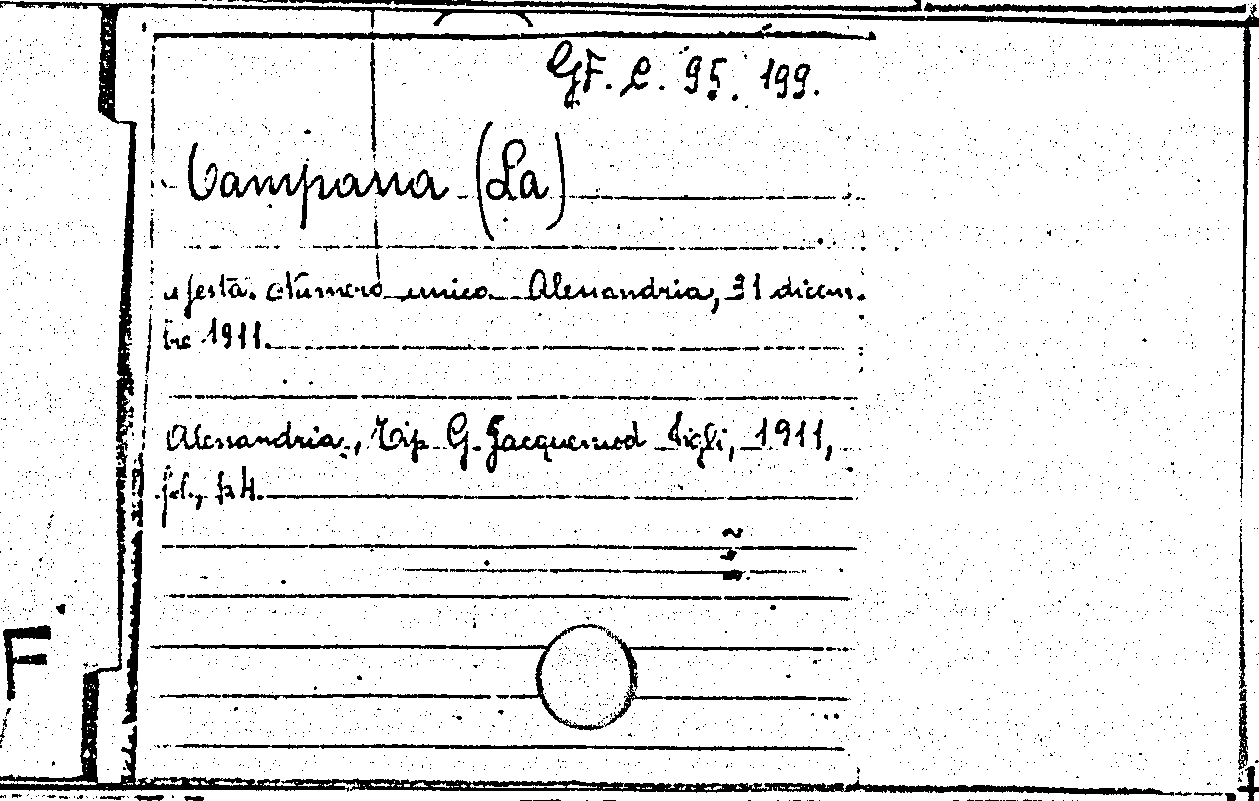 GF. C. 95. 199.
Campana (La)
a festa. Numero unico. Alessandria, 31 dicem-
bre 1911.
Alessandria, Tip. G. Jacquemod Figli, 1911,
fol., p. 4.
F